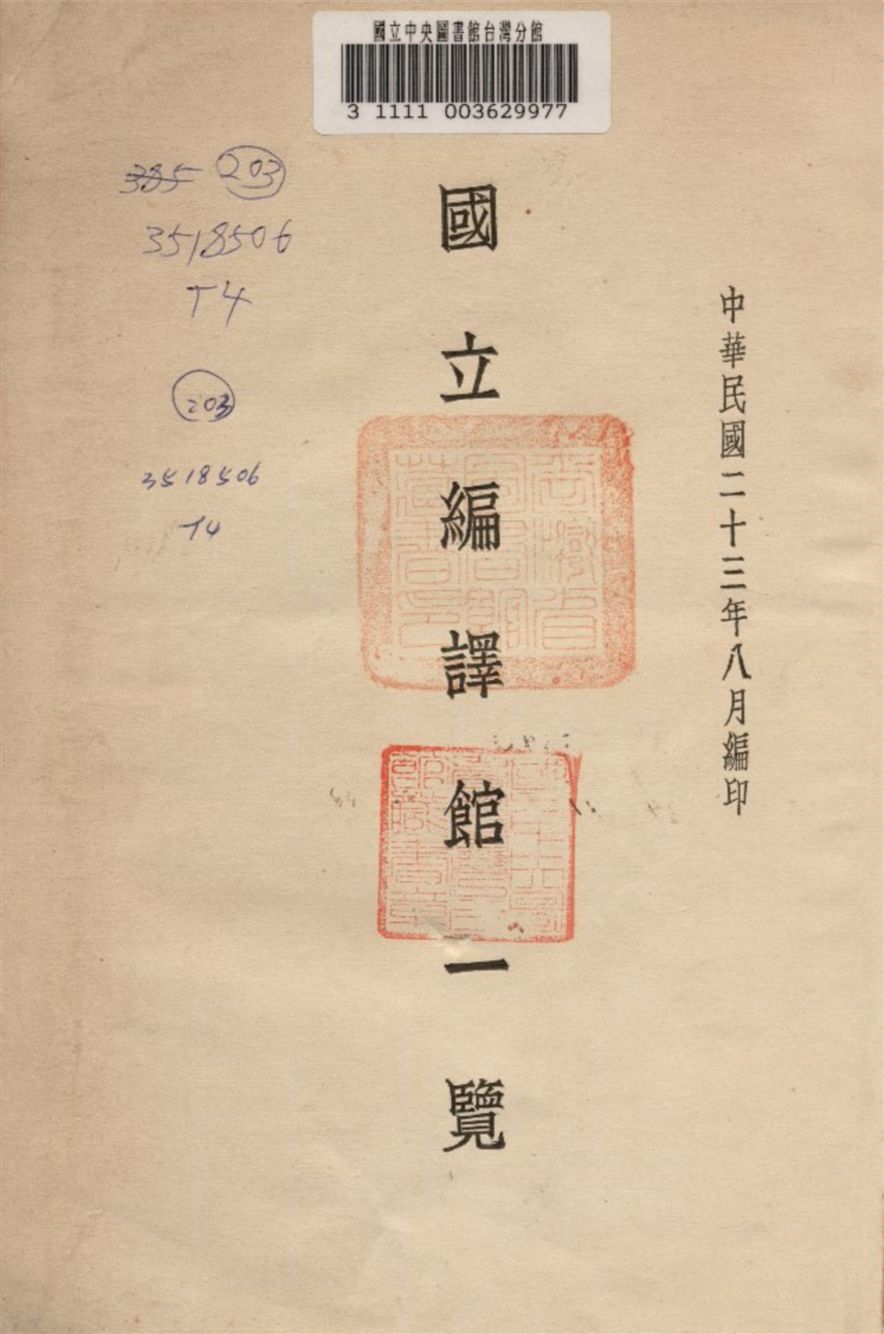 國立中央圖書館台灣分館
3 1111 003629977
中華民國二十三年八月編印
國立編譯館一覽
385 203
3518506
T4
203
3518506
T4